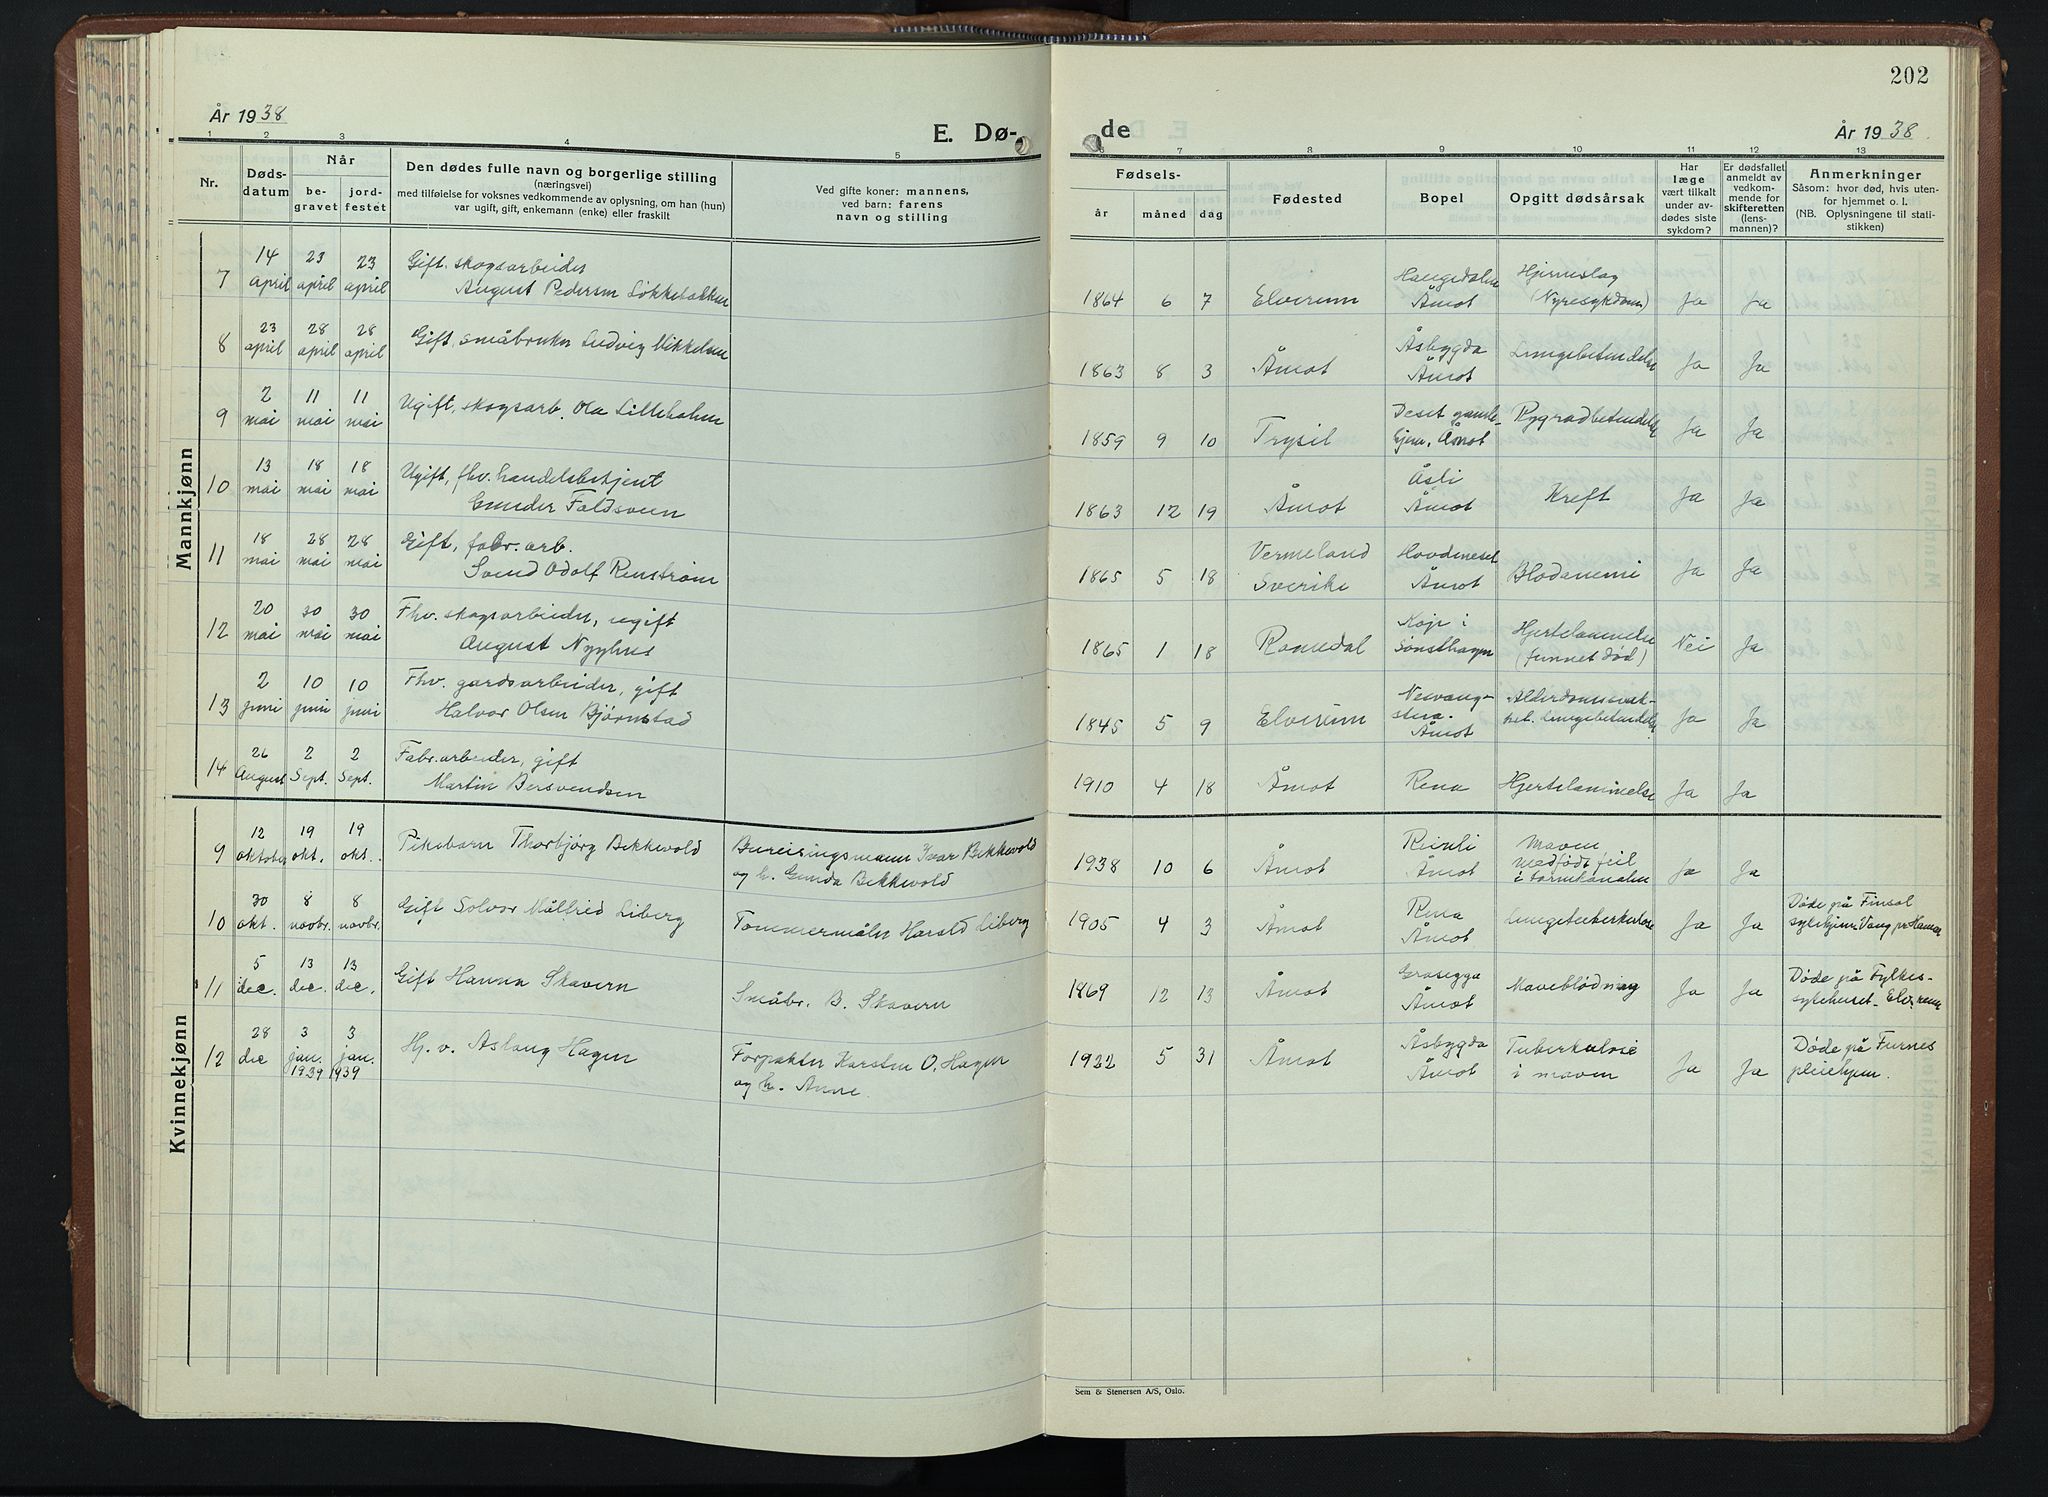 202
År 1938
E. Dø-
de
År 1938
1 2 3 4 5 6 7 8 9 10 11 12 13
Nr.
Døds-
datum
Når
be-
gravet
jord-
festet
Den dødes fulle navn og borgerlige stilling
(næringsvei)
med tilføielse for voksnes vedkommende av oplysning, om han (hun)
var ugift, gift, enkemann (enke) eller fraskilt
Ved gifte koner: mannens,
ved barn: farens
navn og stilling
Fødsels-
år
måned
dag
Fødested
Bopel
Opgitt dødsårsak
Har
læge
vært tilkalt
under av-
dødes siste
sykdom?
Er dødsfallet
anmeldt av
vedkom-
mende for
skifteretten
(lens-
mannen)?
Anmerkninger
Såsom: hvor død, hvis uten-
for hjemmet o. l.
(NB. Oplysningene til stati-
stikken)
Mannkjønn
7 14 april 23 april 23 april Gift. skogsarbeider
August Pedersen Løkkebakken
1864 6 7 Elverum Haugedalen Åmot Hjerneslag (Nyresykdom) Ja Ja
8 23 april 28 april 28 april Gift, småbruker Ludvig Mikkelsen
1863 8 3 Åmot Åsbygda Åmot Lungebetendelse Ja Ja
9 2 mai 11 mai 11 mai Ugift, skogsarb. Ola Lilleholen
1859 9 10 Trysil Deset gamle- hjem, Åmot Rygradbetendelse Ja Ja
10 13 mai 18 mai 18 mai Ugift, fhv. handelsbetjent
Gunder Foldsveen
1863 12 19 Åmot Åsli Åmot Kreft Ja Ja
11 18 mai 28 mai 28 mai Gift, fabr. arb.
Svend Odolf Renstrøm
1865 5 18 Vermeland Sverike Hovdeneset Åmot Blodanemi Ja Ja
12 20 mai 30 mai 30 mai Fhv. skogsarbeider, ugift
August Nyhus
1865 1 18 Romedal Koje i Sønsthagen Hjertelammelse (funnet død) Nei Ja
13 2 juni 10 juni 10 juni Fhv. gardsarbeider, gift
Halvor Olsen Bjørnstad
1845 5 9 Elverum Åmot Alderdomssvak- het. Lungebetendelse Ja Ja
14 26 August 2 Sept. 2 Sept. Fabr. arbeider, gift
Martin Bersvendsen
1910 4 18 Åmot Rena Hjertelammelse Ja Ja
Kvinnekjønn
9 12 oktober 19 okt. 19 okt. Pikebarn Thorbjørg Bekkevold
Bureisingsmann Ivar Bekkevold
og h. Gunda Bekkevold
1938 10 6 Åmot Åmot Maven medfødt feil i tarmkanalen Ja Ja
10 30 okt. 8 novbr. 8 novbr. Gift Solvor Målfrid Liberg
Tommermåler Harald Liberg
1905 4 3 Åmot Rena Åmot Lungetuberkulose Ja Ja Døde på Finsal
sykehjem Vang pr Hamar
11 5 dec. 13 dec. 13 dec. Gift Hanna Skavern
Småbr. B. Skavern
1869 12 13 Åmot Grasegga Åmot Maveblødning Ja Ja Døde på Fylkes-
sykehuset - Elverum
12 28 dec 3 jan. 1939 3 jan. 1939 Hj. v. Aslaug Hagen
Forpakter Karsten O. Hagen
og h. Anne.
1922 5 31 Åmot Åsbygda Åmot Tuberkulose i maven Ja Ja Døde på Furnes
pleiehjem.
Sem & Stenersen A/S, Oslo.